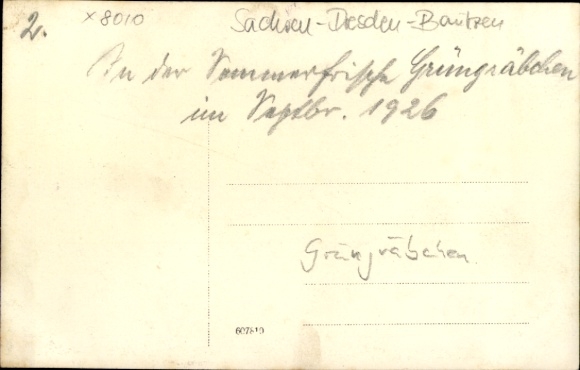 2.
x 8010
Sachsen-Dresden-Bautzen
In der Sommerfrische Grüngräbchen
im Septbr. 1926
Grüngräbchen
607810